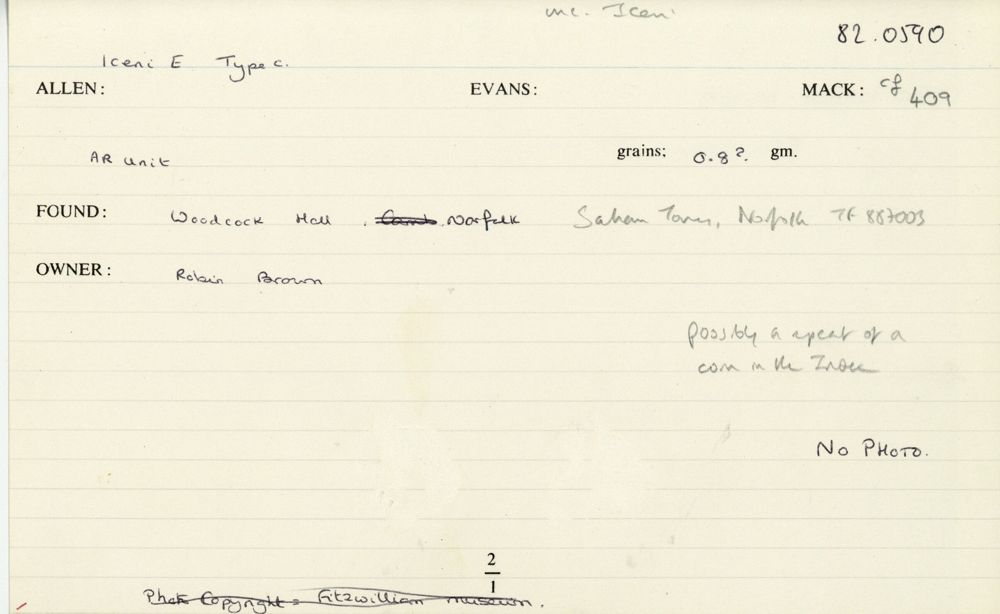 unc. Iceni
82.0590
Iceni E Type c.
ALLEN: EVANS: MACK: cf 409
AR unit grains; 0.8?. gm.
FOUND: Woodcock Hall . Camb. Norfolk Saham Toney, Norfolk TF 887003
OWNER: Robin Brown
Possibly a repeat of a
coin in the Index
NO PHOTO.
2
1
Photo Copyright = Fitzwilliam museum.